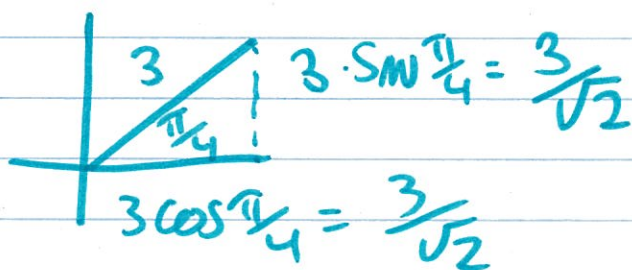 3
π/4
3·Sin π/4 = 3/√2
3cos π/4 = 3/√2